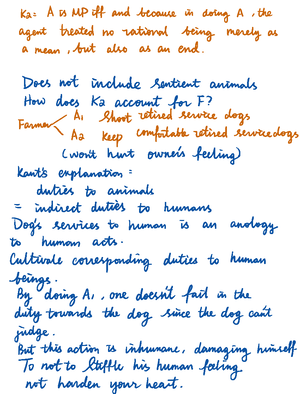 K2= A is MP iff and because in doing A, the
agent treated no rational being merely as
a mean, but also as an end.
Does not include sentient animals
How does K2 account for F?
A1 shoot retired service dogs
Farmer
A2 keep comfortable retired service dogs
(won't hurt owner's feeling)
Kant's explanation =
duties to animals
= indirect duties to humans
Dog's services to human is an anology
to human acts.
Cultivate corresponding duties to human
beings.
By doing A1, one doesn't fail in the
duty towards the dog since the dog can't
judge.
But this action is inhumane, damaging himself
To not to stiffle his human feeling
not harden your heart.